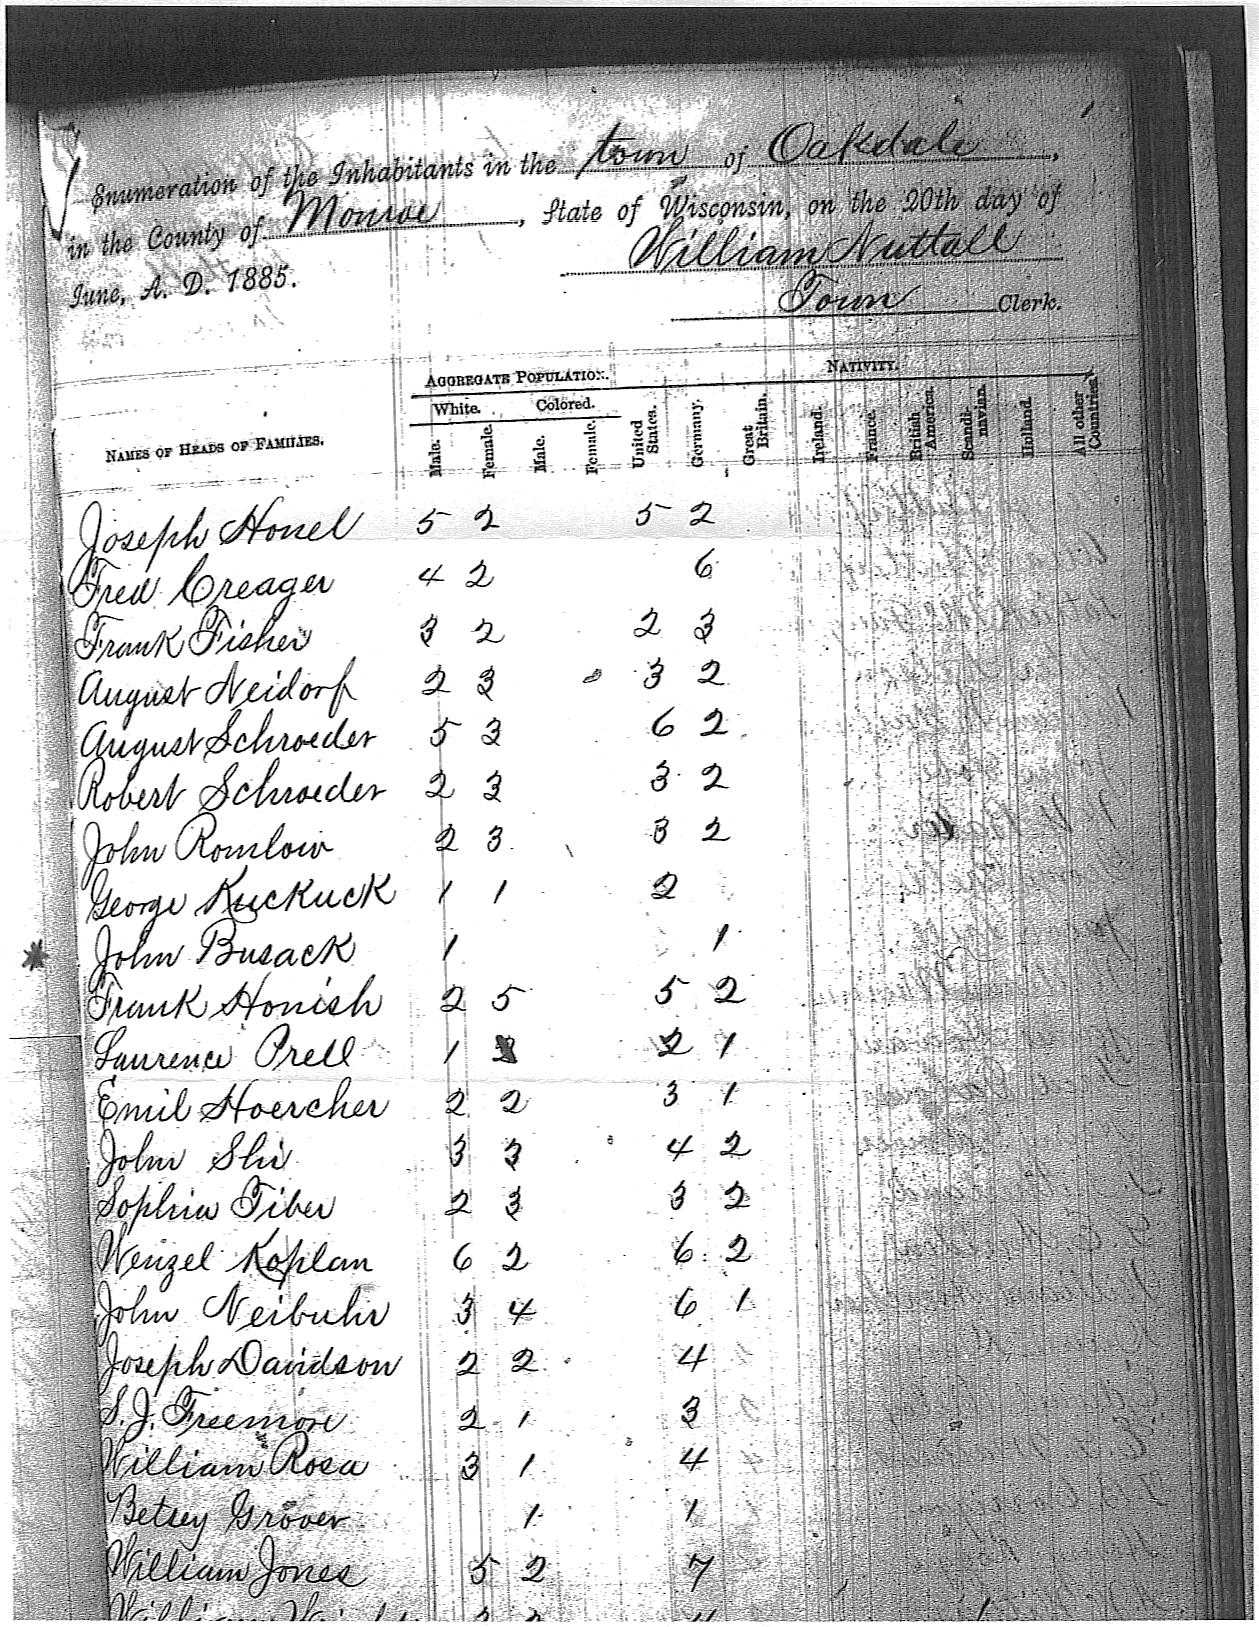 Enumeration of the Inhabitants in the town of Oakdale,
in the County of Monroe, State of Wisconsin, on the 20th day of
June, A. D. 1885.
William Nuttall
Town Clerk.
AGGREGATE POPULATION. NATIVITY.
White. Colored.
NAMES OF HEADS OF FAMILIES. Male. Female. Male. Female. United States. Germany. Great Britain. Ireland. France. British America. Scandinavian. Holland. All other Countries.
Joseph Honel 5 2 5 2
Fred Creager 4 2 6
Frank Fisher 3 2 2 3
August Neidorf 2 3 3 2
August Schroeder 5 3 6 2
Robert Schroeder 2 3 3 2
John Romlow 2 3 3 2
George Kuckuck 1 1 2
John Busack 1 1
Frank Honish 2 5 5 2
Laurence Prell 1 2 1
Emil Hoercher 2 2 3 1
John Shi 3 3 4 2
Sophia Tiber 2 3 3 2
Wenzel Koplan 6 2 6 2
John Neibuhr 3 4 6 1
Joseph Davidson 2 2 4
S. J. Freemore 2 1 3
William Rosa 3 1 4
Betsey Grover 1 1
William Jones 5 2 7
William